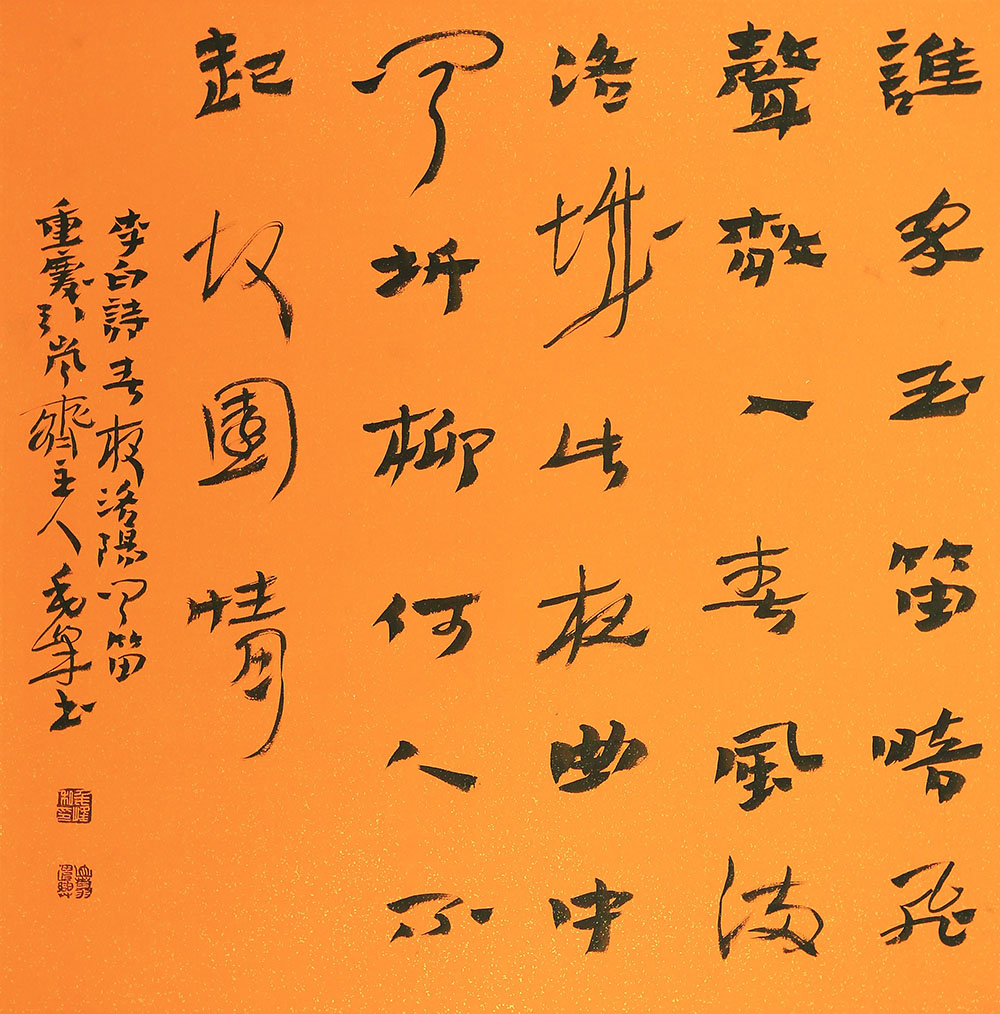 誰家玉笛暗飛
聲散入春風滿
洛城此夜曲中
聞折柳何人不
起故園情
李白詩春夜洛陽聞笛
重慶引齋主人毛峯書